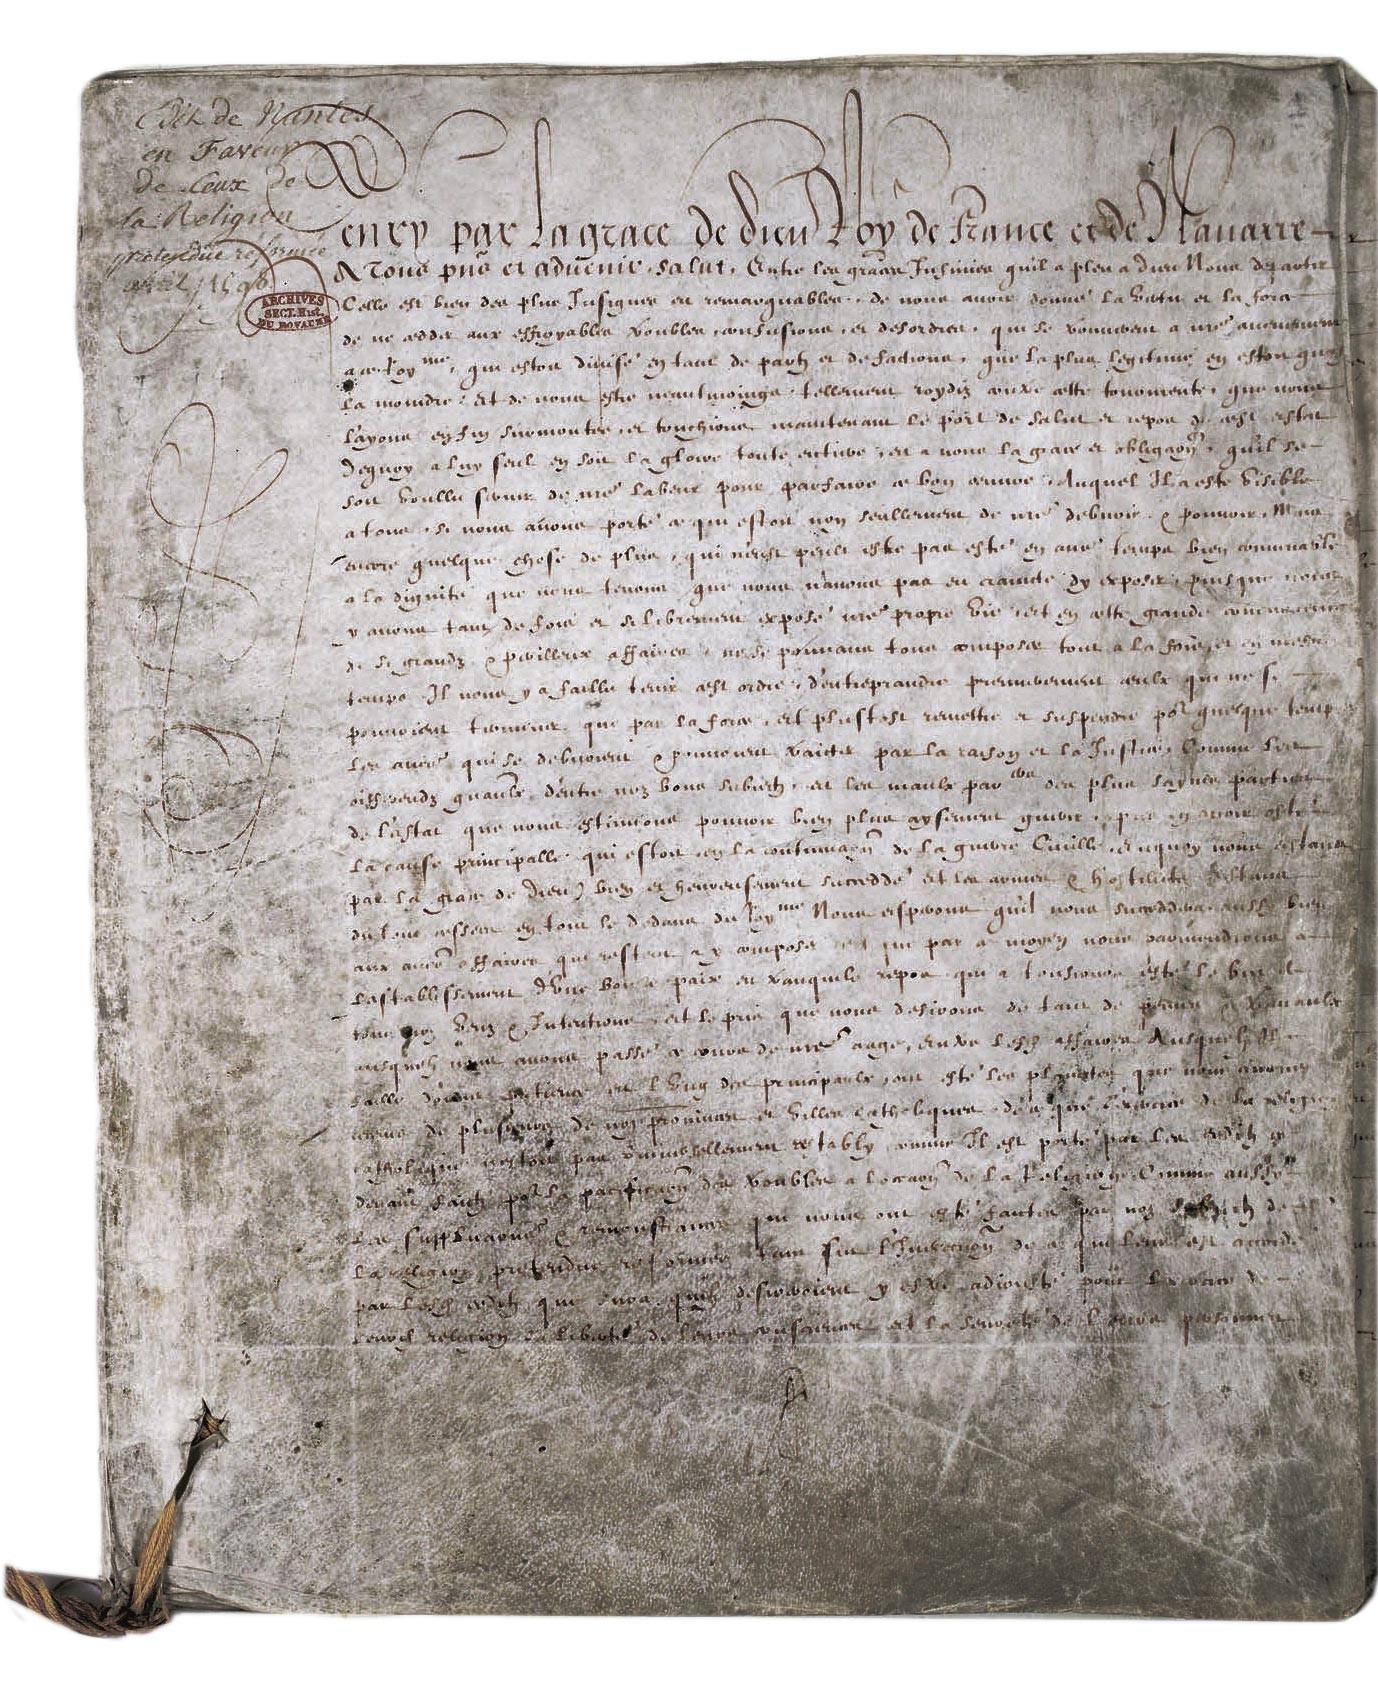 Edit de Nantes
en Faveur
de Ceux de
la Religion
pretendue reformée
avril 1598
ARCHIVES
SECT. Hist.
DU ROYAUME
Henry par La grace de dieu Roy de France et de Nauarre
A Tous pns et aduenir, Salut. Entre les graces Infinies quil a pleu a dieu Nous departir
Celle est bien des plus Insignes et remarquables, de nous auoir donné la vertu et la force
de ne cedder aux effroyables troubles, confusions, et desordres, qui se trouuerent a nre aduenement
a ce Roy me, qui estoit diuisé en tant de partz et de factions, que la plus legitime en estoit quasi
la moindre, Et de nous estre neantmoings tellement roydiz contre ceste tourmente, que nous
layons enfin surmontée, et touchions maintenant le port de salut et repos de cest estat
Dequoy a luy seul en soit la gloire toute entiere, et a nous la grace et obligaon, quil se
soit voullu seruir de nre labeur pour parfaire ce bon oeuure, Auquel Il a esté visible
a tous, si nous auons porté ce qui estoit non seullement de nre debuoir, & pouuoir, Mais
encore quelque chose de plus, qui neust peult estre pas esté en autre temps bien conuenable
a la dignité que nous tenons, que nous nauons pas eu craincte dy exposer, puisque nous
y auons tant de fois et si librement exposé nre propre vie, Et en ceste grande concurrence
de si grandz & perilleux affaires, ne se pouuans tous composer tout a la fois, et en mesme
temps, Il nous y a faillu tenir cest ordre, dentreprandre premierement ceulx qui ne se
pouuoient terminer que par la force, et plustost remettre et suspendre pour quelque temps
les autres qui se debuoient & pouuoient traicter par la raison et la Justice, Comme les
differendz generaulx dentre noz bons subiectz, et les maulx par ers des plus saynes parties
de lestat que nous estimions pouuoir bien plus aysement guerir, apres en auoir osté
la cause principalle, qui estoit en la continuaon de la guerre Ciuille, enquoy nous estans
par la grace de Dieu) bien et heureusement succeddé et les armes & hostilitez estans
du tout cessées en tout le dedans du Roy me Nous esperons quil nous succeddera aussy bien
aux autres affaires qui restent a y composer et que par ce moyen nous paruiendrons a
lestablissement dune bonne paix et tranquile repos qui a tousiours esté le but de
tous noz veuz & Intentions, et le pris que nous desirons de tant de peines & trauaulx
ausquelz nous auons passé ce cours de nre aage, Entre lesd affaires Ausquelz Il a
faillu donner patience et l'Vng des principaulx ont esté les plainctes que nous auons
receues de plusieurs de noz prouinces et villes catholiques, de ce que lexercice de la religion
catholique nestoit pas vniuersellement restably comme Il est porté par les edictz cy
deuant faictz pour la pacificaon des troubles a loccaon de la Religion, Comme aussy
les supplicaons & remonstrances qui nous ont esté faictes par noz subiectz de
la religion pretendue reformée tant sur l'Inexecuon de ce qui leur est accordé
par lesd edictz que de ce quilz desireroient y estre adiousté pour lexercice de
leurd religion la liberté de leurs consciences et la seureté de leurs personnes